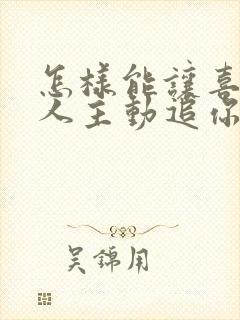 怎様能讓喜
人主動追你
吳錦用